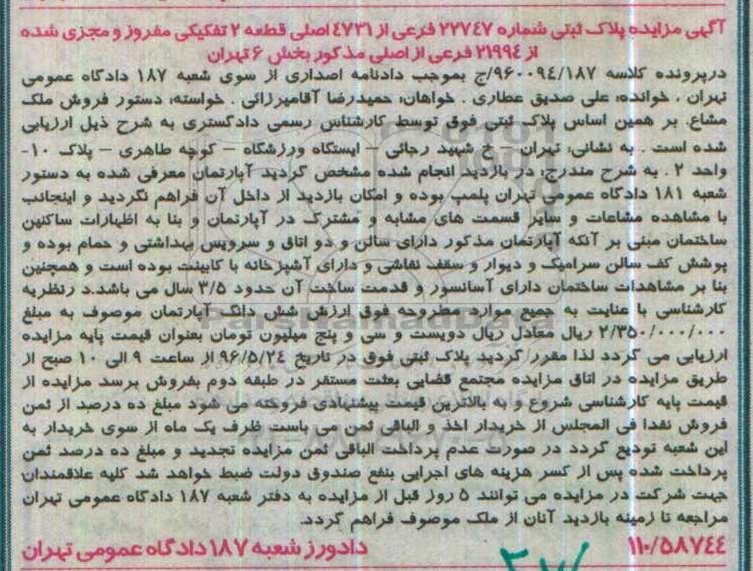 آگهی مزایده پلاک ثبتی شماره ۲۲۷۴۷ فرعی از ۴۷۳۱ اصلی قطعه ۲ تفکیکی مفروز و مجزی شده
از ۲۱۹۹۴ فرعی از اصلی مذکور بخش ۶ تهران
درپرونده کلاسه ۹۶۰۰۹۴/۱۸۷/ج بموجب دادنامه اصداری از سوی شعبه ۱۸۷ دادگاه عمومی
تهران . خوانده: علی صدیق عطاری . خواهان: حمیدرضا آقامیرزائی . خواسته: دستور فروش ملک
مشاع. بر همین اساس پلاک ثبتی فوق توسط کارشناس رسمی دادگستری به شرح ذیل ارزیابی
شده است . به نشانی: تهران – خ شهید رجائی – ایستگاه ورزشگاه – کوچه طاهری – پلاک ۱۰-
واحد ۲ . به شرح مندرج: در بازدید انجام شده مشخص گردید آپارتمان معرفی شده به دستور
شعبه ۱۸۱ دادگاه عمومی تهران پلمپ بوده و امکان بازدید از داخل آن فراهم نگردید و اینجانب
با مشاهده مشاعات و سایر قسمت های مشابه و مشترک در آپارتمان و بنا به اظهارات ساکنین
ساختمان مبنی بر آنکه آپارتمان مذکور دارای سالن و دو اتاق و سرویس بهداشتی و حمام بوده و
پوشش کف سالن سرامیک و دیوار و سقف نقاشی و دارای آشپزخانه با کابینت بوده است و همچنین
بنا بر مشاهدات ساختمان دارای آسانسور و قدمت ساخت آن حدود ۳/۵ سال می باشد.د رنظریه
کارشناسی با عنایت به جمیع موارد مطروحه فوق ارزش شش دانگ آپارتمان موصوف به مبلغ
۲/۳۵۰/۰۰۰/۰۰۰ ریال معادل ریال دویست و سی و پنج میلیون تومان بعنوان قیمت پایه مزایده
ارزیابی می گردد لذا مقرر گردید پلاک ثبتی فوق در تاریخ ۹۶/۵/۲۴ از ساعت ۹ الی ۱۰ صبح از
طریق مزایده در اتاق مزایده مجتمع قضایی بعثت مستقر در طبقه دوم بفروش برسد مزایده از
قیمت پایه کارشناسی شروع و به بالاترین قیمت پیشنهادی فروخته می شود مبلغ ده درصد از ثمن
فروش نقدا فی المجلس از خریدار اخذ و الباقی ثمن می بایست ظرف یک ماه از سوی خریدار به
این شعبه تودیع گردد در صورت عدم پرداخت الباقی ثمن مزایده تجدید و مبلغ ده درصد ثمن
پرداخت شده پس از کسر هزینه های اجرایی بنفع صندوق دولت ضبط خواهد شد کلیه علاقمندان
جهت شرکت در مزایده می توانند ۵ روز قبل از مزایده به دفتر شعبه ۱۸۷ دادگاه عمومی تهران
مراجعه تا زمینه بازدید آنان از ملک موصوف فراهم گردد.
۱۱۰/۵۸۷۴۴ دادورز شعبه ۱۸۷ دادگاه عمومی تهران
ParsNamadData